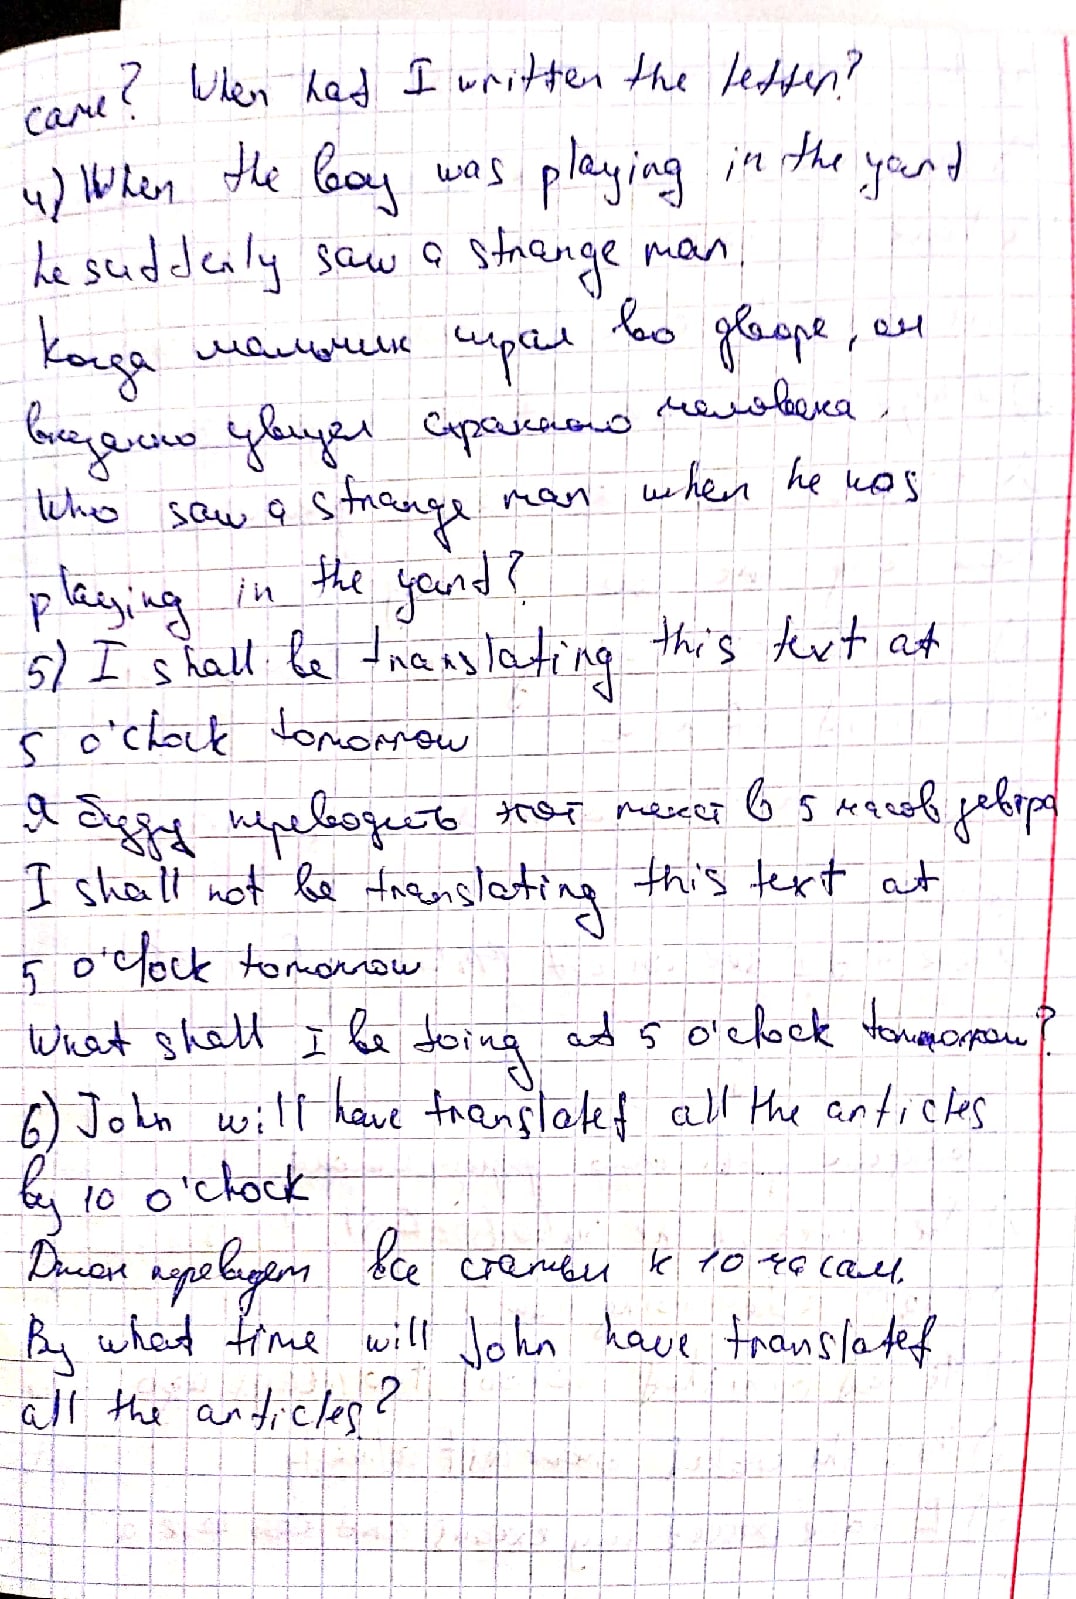 came? When had I written the letter?
4) When the boy was playing in the yard
he suddenly saw a strange man.
Когда мальчик играл во дворе, он
внезапно увидел странного человека.
Who saw a strange man when he was
playing in the yard?
5) I shall be translating this text at
5 o'clock tomorrow
Я буду переводить этот текст в 5 часов завтра
I shall not be translating this text at
5 o'clock tomorrow
What shall I be doing at 5 o'clock tomorrow?
6) John will have translated all the articles
by 10 o'clock
Джон переведет все статьи к 10 часам.
By what time will John have translated
all the articles?